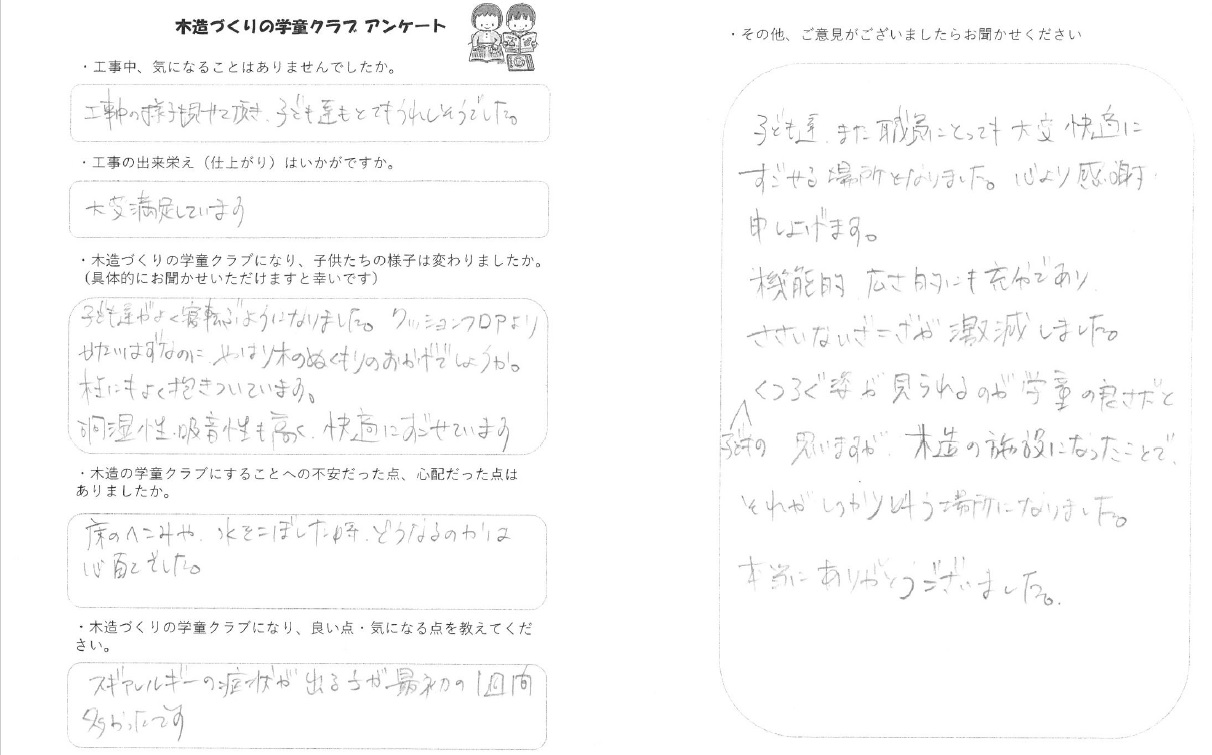 木造づくりの学童クラブ アンケート
・工事中、気になることはありませんでしたか。
工事中の様子も見せて頂き、子ども達もとてもうれしそうでした。
・工事の出来栄え（仕上がり）はいかがですか。
大変満足しています
・木造づくりの学童クラブになり、子供たちの様子は変わりましたか。
（具体的にお聞かせいただけますと幸いです）
子ども達がよく寝転ぶようになりました。クッションフロアより
せたいはずなのに、やはり木のぬくもりのおかげでしょうか。
柱にもよく抱きついています。
調湿性、吸音性も高く、快適にすごせています
・木造の学童クラブにすることへの不安だった点、心配だった点は
ありましたか。
床のへこみや、水をこぼした時、どうなるのかは
心配でした。
・木造づくりの学童クラブになり、良い点・気になる点を教えてくだ
さい。
スギアレルギーの症状が出る子が最初の1週間
多かったです
・その他、ご意見がございましたらお聞かせください
子ども達、また職員にとっても大変快適に
すごせる場所となりました。心より感謝
申し上げます。
機能的、広さ的にも充分であり、
ささいないざこざが激減しました。
くつろぐ姿が見られるのが学童の良さだと
子どもの 思いますが、木造の施設になったことで、
それがしっかり叶う場所になりました。
本当にありがとうございました。